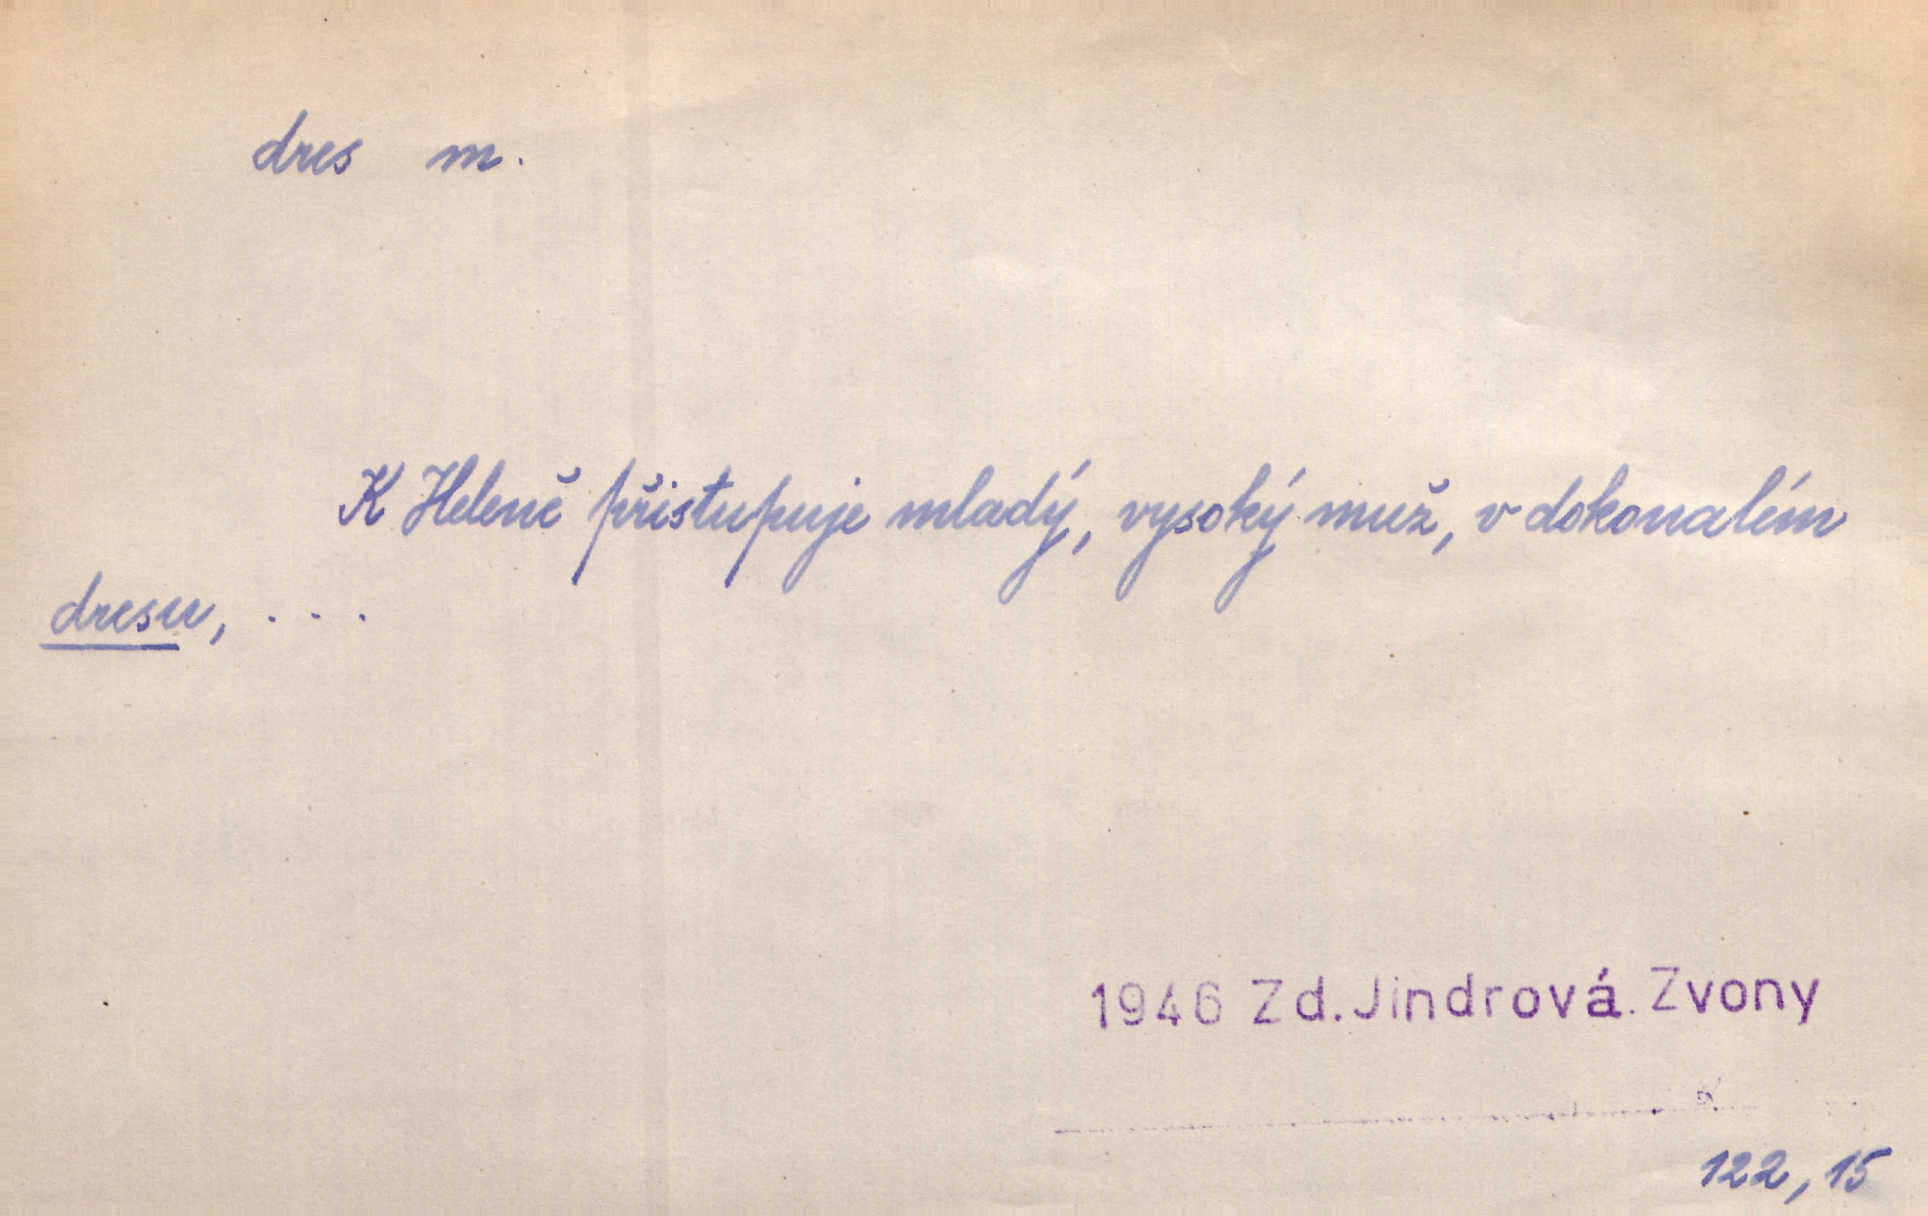 dres m.
K Heleně přistupuje mladý, vysoký muž, v dokonalém
dresu, . . .
1946 Zd. Jindrová. Zvony
122, 15